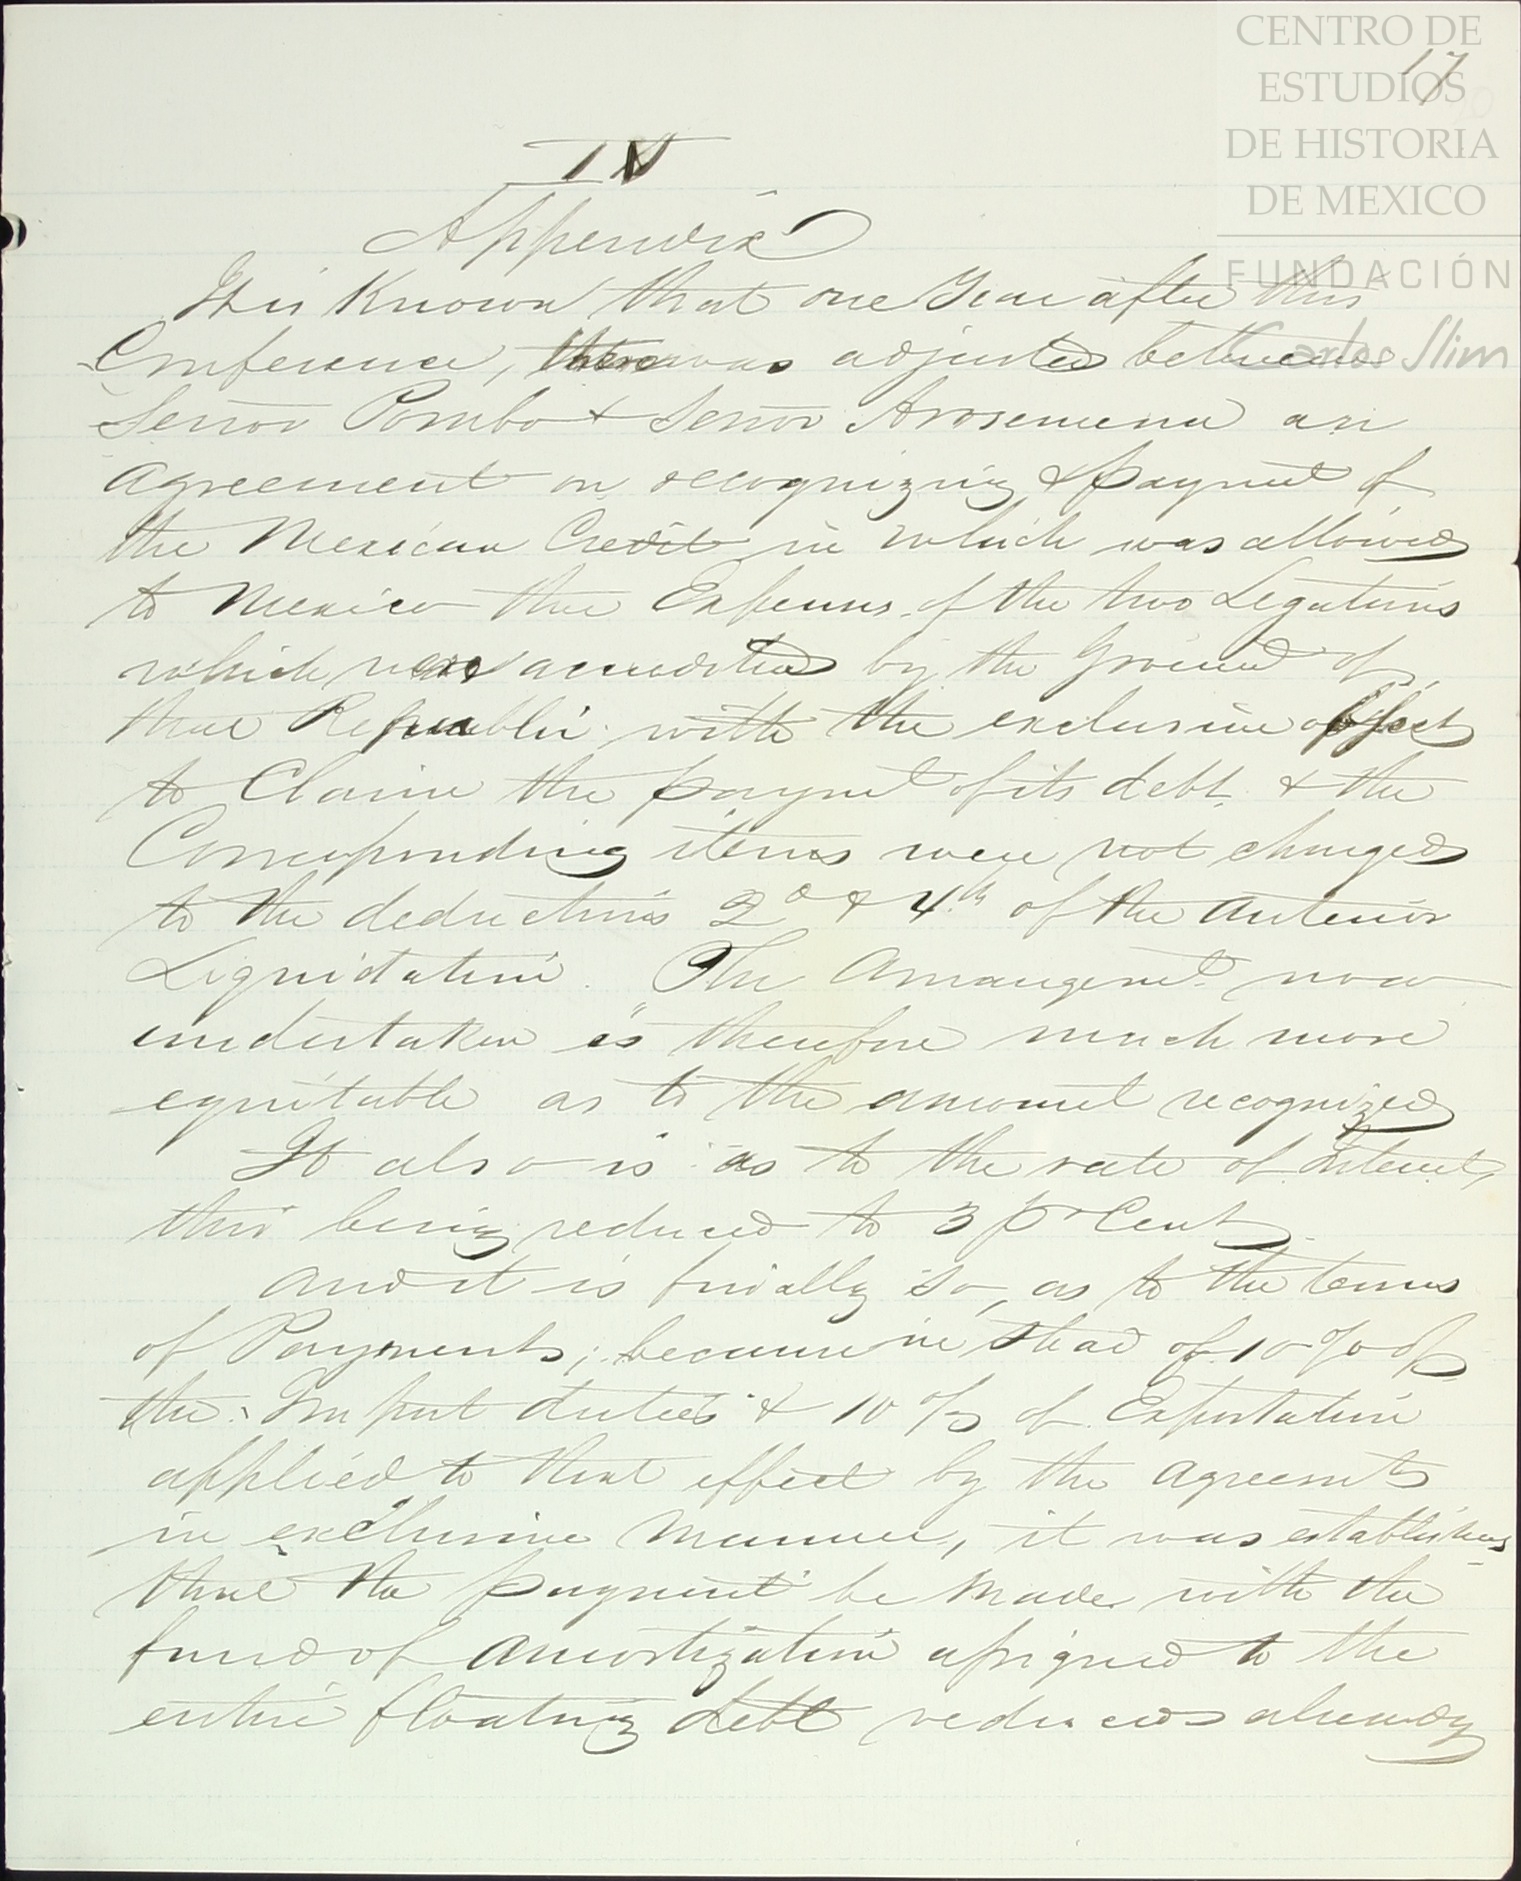 CENTRO DE
ESTUDIOS
DE HISTORIA
DE MEXICO
FUNDACIÓN
Carlos Slim
17
IV
Appendix
It is Known that one Year after this
Conference, there was adjusted between
Señor Pombo & Señor Arosemena an
agreement on recognizing & paymt of
the Mexican Credit in which was allowed
to Mexico the Expenses of the two Legations
which were accredited by the Governt of
that Republic with the exclusive object
to Claim the paymt of its debt & the
Corresponding items were not charged
to the deductions 2d & 4th of the anterior
Liquidation. The Arrangemt now
undertaken is therefore much more
equitable as to the amount recognized
It also is as to the rate of Interest,
this being reduced to 3 pr Cent.
and it is finally so, as to the terms
of Payments; because in stead of 10 % of
the Import duties & 10 % of Exportation
applied to that effect by the agreemts
in exclusive manner, it was established
that the payment be made with the
fund of amortization assigned to the
entire floating debt reduced already